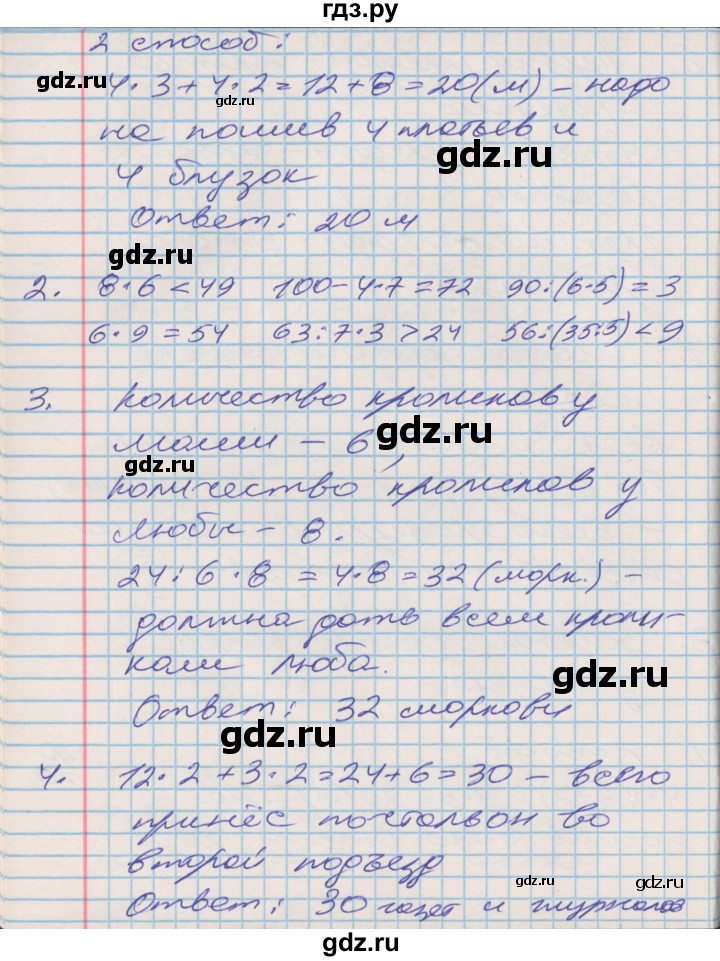 гдз.ру
2 способ:
4·3+4·2=12+8=20(м) – надо
на пошив 4 платьев и
4 блузок
Ответ: 20 м
2. 8·6<49 100–4·7=72 90:(6·5)=3
6·9=54 63:7·3>24 56:(35:5)<9
3. Количество кроликов у
Маши – 6,
количество кроликов у
Любы – 8.
24:6·8=4·8=32 (морк.) –
должна дать всем кроли-
кам Люба.
Ответ: 32 моркови
4. 12·2+3·2=24+6=30 – всего
принёс почтальон во
второй подъезд
Ответ: 30 газет и журналов
gdz.ru
gdz.ru
gdz.ru
gdz.ru
gdz.ru
gdz.ru
gdz.ru
gdz.ru
gdz.ru
gdz.ru
gdz.ru